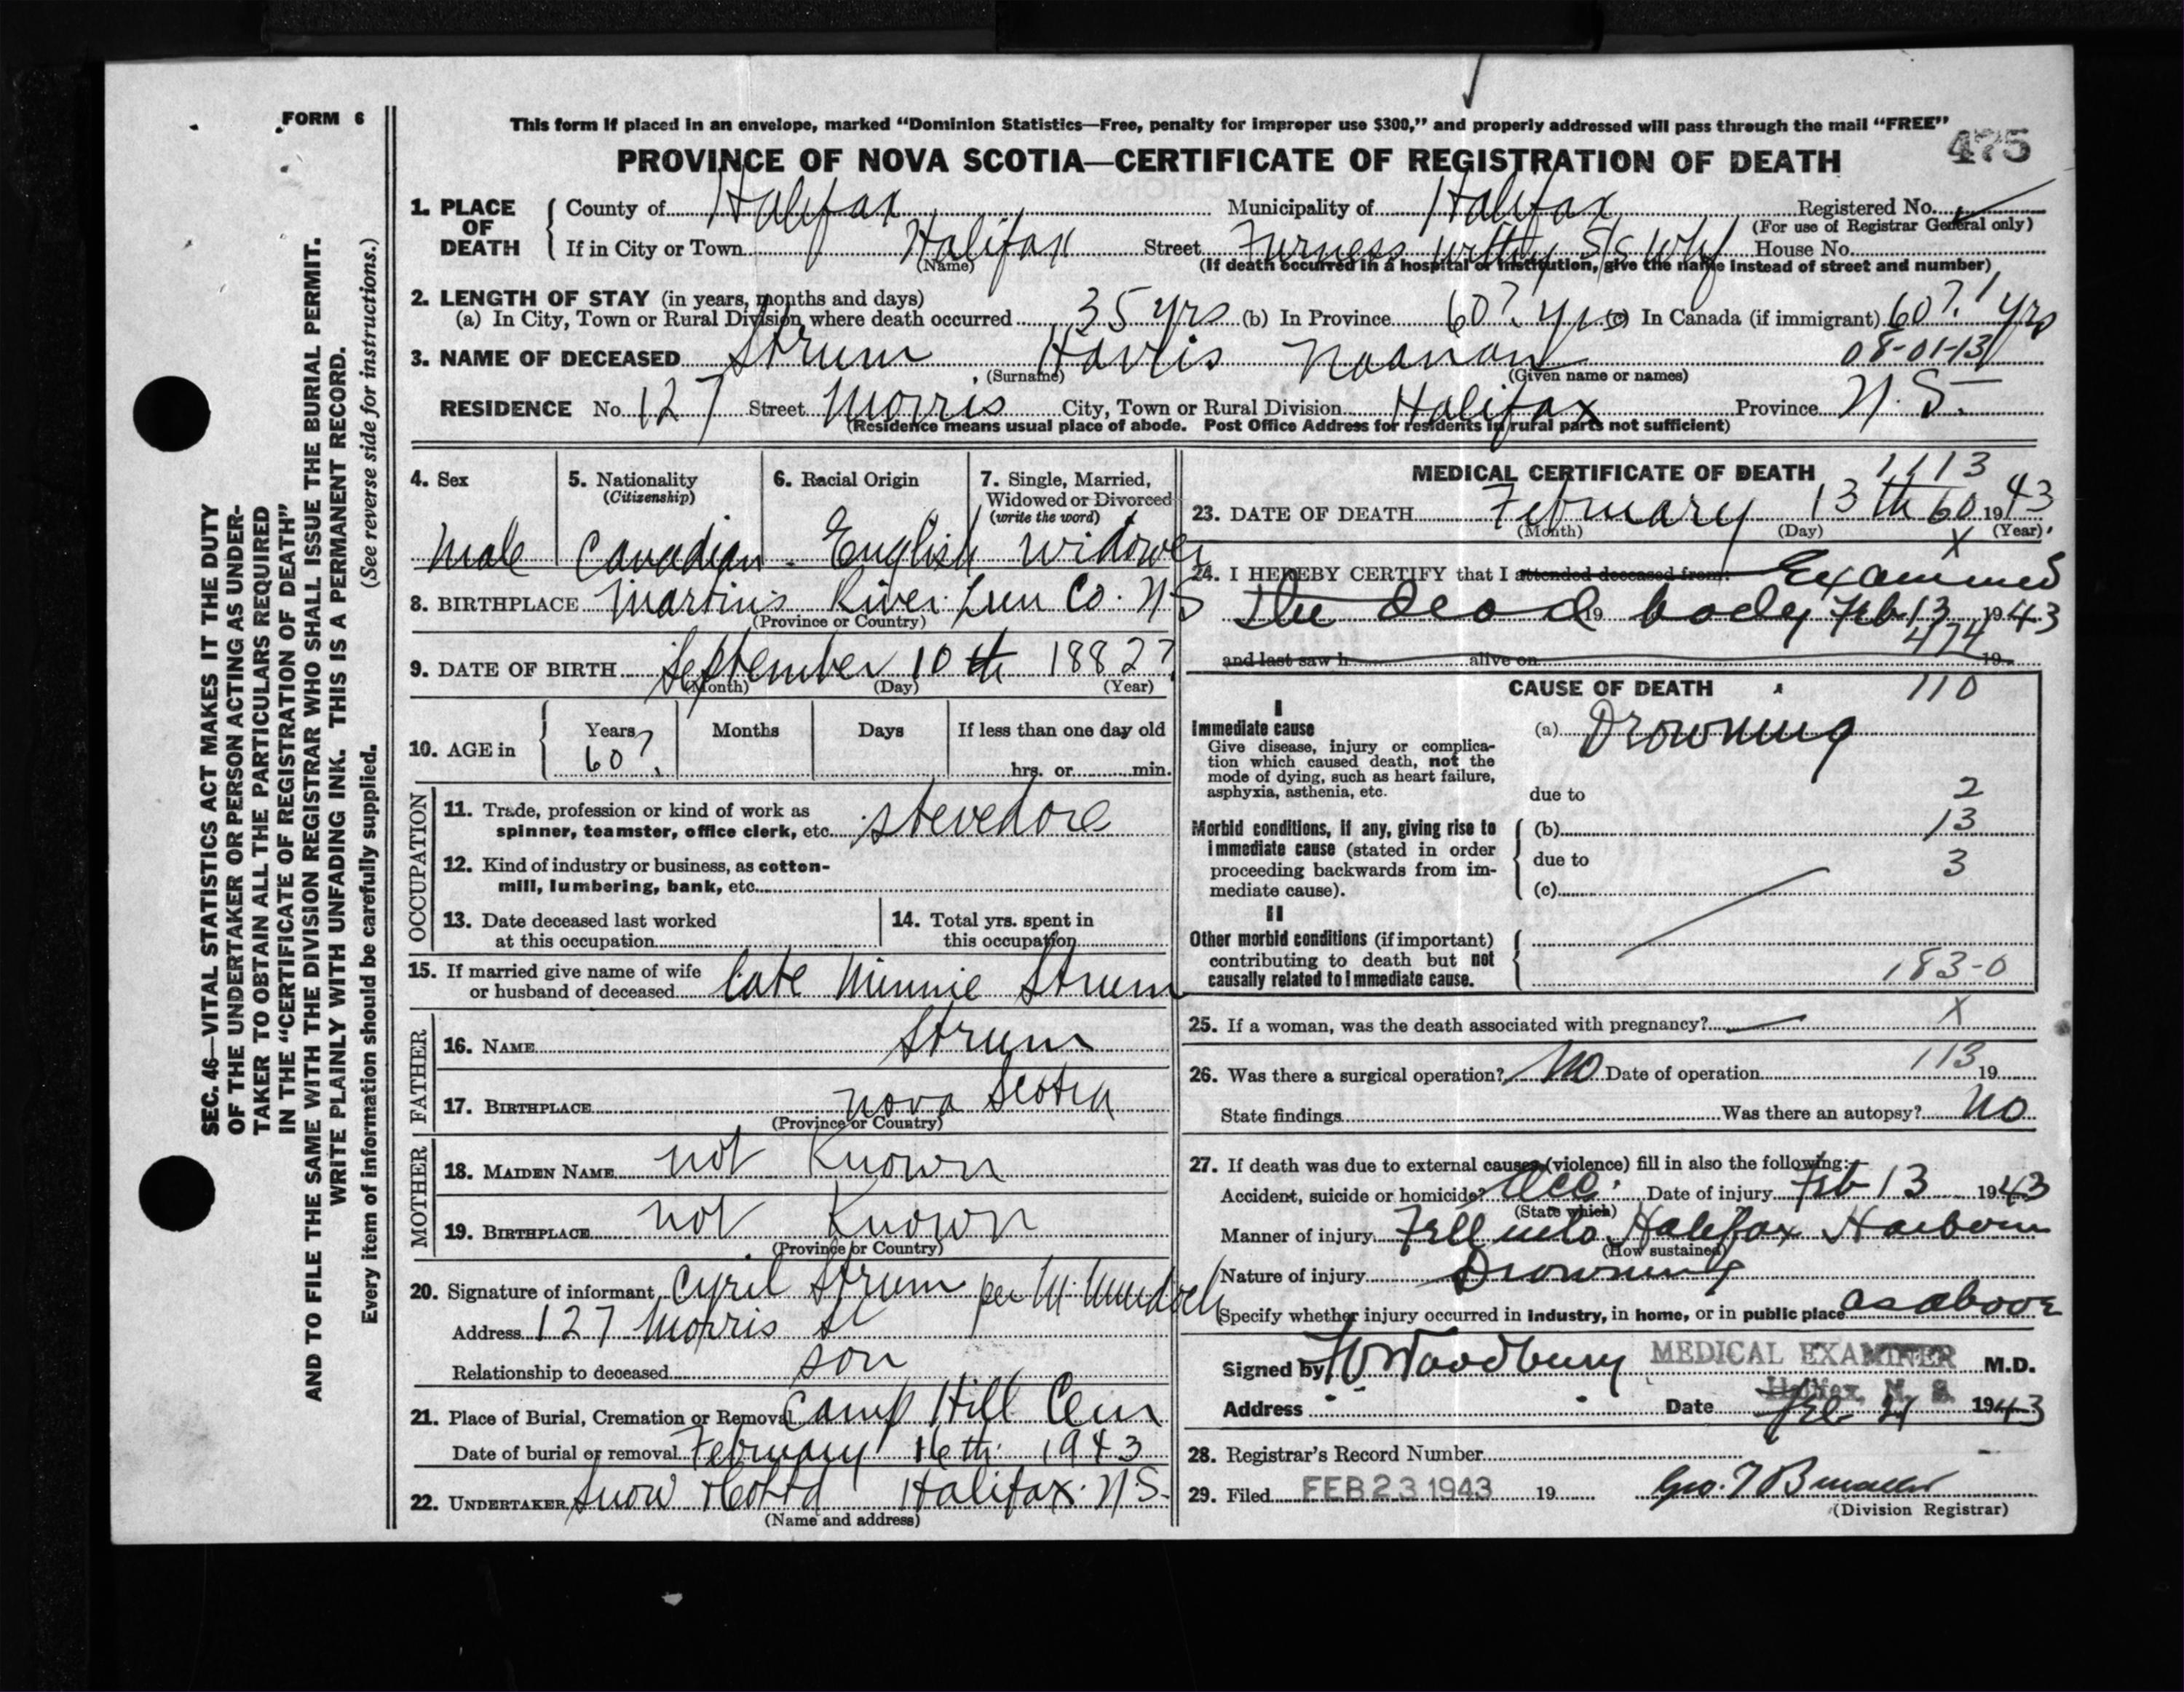 FORM 6
SEC. 46—VITAL STATISTICS ACT MAKES IT THE DUTY
OF THE UNDERTAKER OR PERSON ACTING AS UNDER-
TAKER TO OBTAIN ALL THE PARTICULARS REQUIRED
IN THE "CERTIFICATE OF REGISTRATION OF DEATH"
AND TO FILE THE SAME WITH THE DIVISION REGISTRAR WHO SHALL ISSUE THE BURIAL PERMIT.
WRITE PLAINLY WITH UNFADING INK. THIS IS A PERMANENT RECORD.
Every item of information should be carefully supplied. (See reverse side for instructions.)
This form if placed in an envelope, marked "Dominion Statistics—Free, penalty for improper use $300," and properly addressed will pass through the mail "FREE"
PROVINCE OF NOVA SCOTIA—CERTIFICATE OF REGISTRATION OF DEATH 475
1. PLACE OF DEATH County of Halifax Municipality of Halifax Registered No.
(For use of Registrar General only)
If in City or Town Halifax Street Furness Withy S/S Whf House No.
(Name) (If death occurred in a hospital or institution, give the name instead of street and number)
2. LENGTH OF STAY (in years, months and days)
(a) In City, Town or Rural Division where death occurred 35 yrs (b) In Province 60? yrs (c) In Canada (if immigrant) 60? yrs
3. NAME OF DECEASED Strum Harris 08-01-13
(Surname) (Given name or names)
RESIDENCE No. 127 Street Morris City, Town or Rural Division Halifax Province N.S.
(Residence means usual place of abode. Post Office Address for residents in rural parts not sufficient)
4. Sex 5. Nationality (Citizenship) 6. Racial Origin 7. Single, Married, Widowed or Divorced (write the word)
Male Canadian English Widower
8. BIRTHPLACE Martins River Lun Co. N S
(Province or Country)
9. DATE OF BIRTH September 10 th 1882?
(Month) (Day) (Year)
10. AGE in Years 60? Months Days If less than one day old
hrs. or min.
OCCUPATION
11. Trade, profession or kind of work as
spinner, teamster, office clerk, etc. stevedore
12. Kind of industry or business, as cotton-
mill, lumbering, bank, etc.
13. Date deceased last worked
at this occupation
14. Total yrs. spent in
this occupation
15. If married give name of wife
or husband of deceased late Minnie Strum
FATHER
16. NAME Strum
17. BIRTHPLACE Nova Scotia
(Province or Country)
MOTHER
18. MAIDEN NAME not Known
19. BIRTHPLACE not Known
(Province or Country)
20. Signature of informant Cyril Strum per M. Murdoch
Address 127 Morris St
Relationship to deceased son
21. Place of Burial, Cremation or Removal Camp Hill Cem
Date of burial or removal February 16 th 1943
22. UNDERTAKER Snow & Co Ltd Halifax N S.
(Name and address)
MEDICAL CERTIFICATE OF DEATH 1113
23. DATE OF DEATH February 13 th 60 1943
(Month) (Day) (Year)
X
24. I HEREBY CERTIFY that I attended deceased from: Examined
the dead 19 body Feb 13 1943
474
and last saw h alive on 19
CAUSE OF DEATH 110
I
Immediate cause (a) Drowning
Give disease, injury or complica-
tion which caused death, not the
mode of dying, such as heart failure,
asphyxia, asthenia, etc.
due to 2
Morbid conditions, if any, giving rise to (b) 13
immediate cause (stated in order
proceeding backwards from im-
mediate cause).
due to 3
(c)
II
Other morbid conditions (if important)
contributing to death but not
causally related to immediate cause. 183-0
25. If a woman, was the death associated with pregnancy? X
26. Was there a surgical operation? No Date of operation 113 19
State findings Was there an autopsy? No
27. If death was due to external causes (violence) fill in also the following:
Accident, suicide or homicide? Acc. Date of injury Feb 13 1943
(State which)
Manner of injury Fell into Halifax Harbour
(How sustained)
Nature of injury Drowning
Specify whether injury occurred in industry, in home, or in public place as above
Signed by Woodbury MEDICAL EXAMINER M.D.
Halifax, N. S.
Address Date Feb 1943
28. Registrar's Record Number
29. Filed FEB 23 1943 19
(Division Registrar)